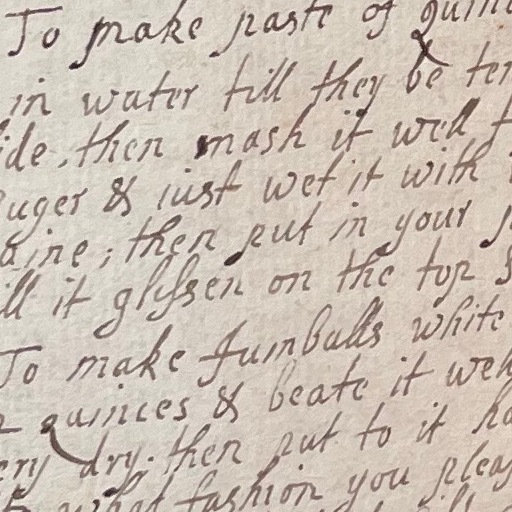 To make paste of quinc
in water till they be ten
side, then mash it well t
suger & iust wet it with
aine; then put in your p
ill it glissen on the top
To make Jumballs white
quinces & beate it well
ery dry. then put to it ha
what fashion you pleas